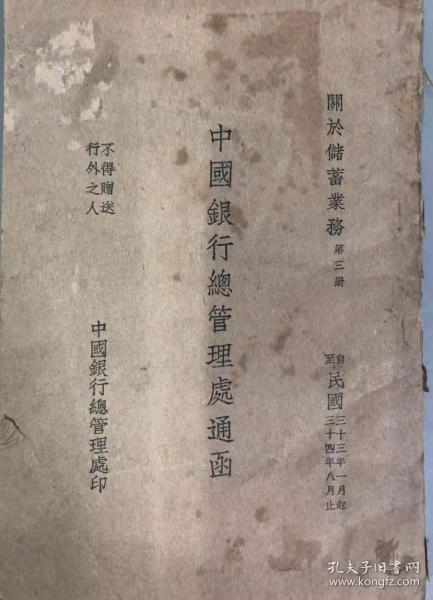 關於儲蓄業務 第三册
自民國三十三年一月起
至民國三十四年八月止
中國銀行總管理處通函
不得贈送
行外之人
中國銀行總管理處印
孔夫子旧书网
www.kongfz.com